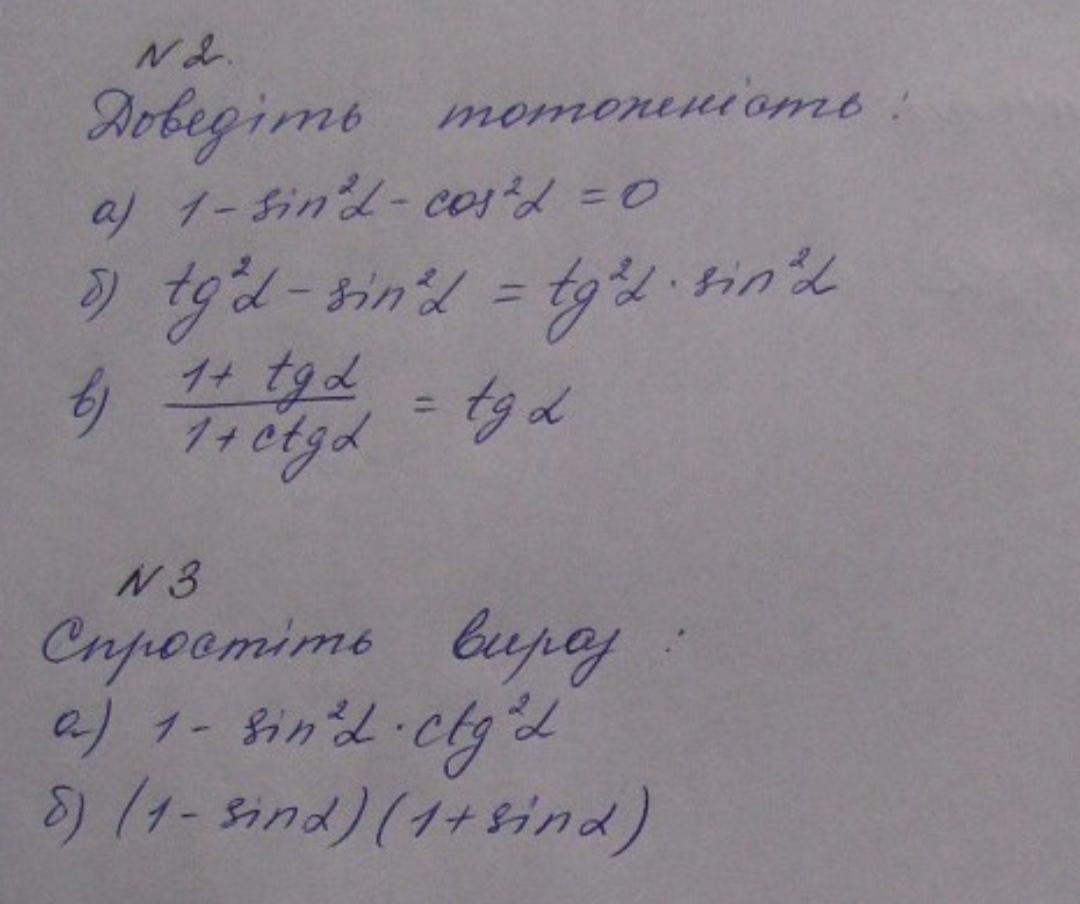 N 2.
Доведіть тотожність:
а) 1 - sin²α - cos²α = 0
б) tg²α - sin²α = tg²α · sin²α
в) (1 + tg α)/(1 + ctg α) = tg α
N 3
Спростіть вираз:
а) 1 - sin²α · ctg²α
б) (1 - sinα)(1 + sinα)